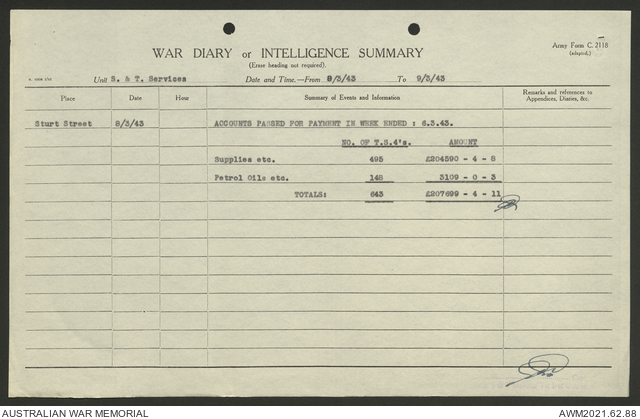 Army Form C. 2118
(adapted.)
WAR DIARY or INTELLIGENCE SUMMARY
(Erase heading not required).
Unit S. & T. Services Date and Time.—From 8/3/43 To 9/3/43
Place Date Hour Summary of Events and Information Remarks and references to Appendices, Diaries, &c.
Sturt Street 8/3/43 ACCOUNTS PASSED FOR PAYMENT IN WEEK ENDED : 6.3.43.
NO. OF T.S.4's. AMOUNT
Supplies etc. 495 £204590 - 4 - 8
Petrol Oils etc. 148 3109 - 0 - 3
TOTALS: 643 £207699 - 4 - 11
AUSTRALIAN WAR MEMORIAL AWM2021.62.88